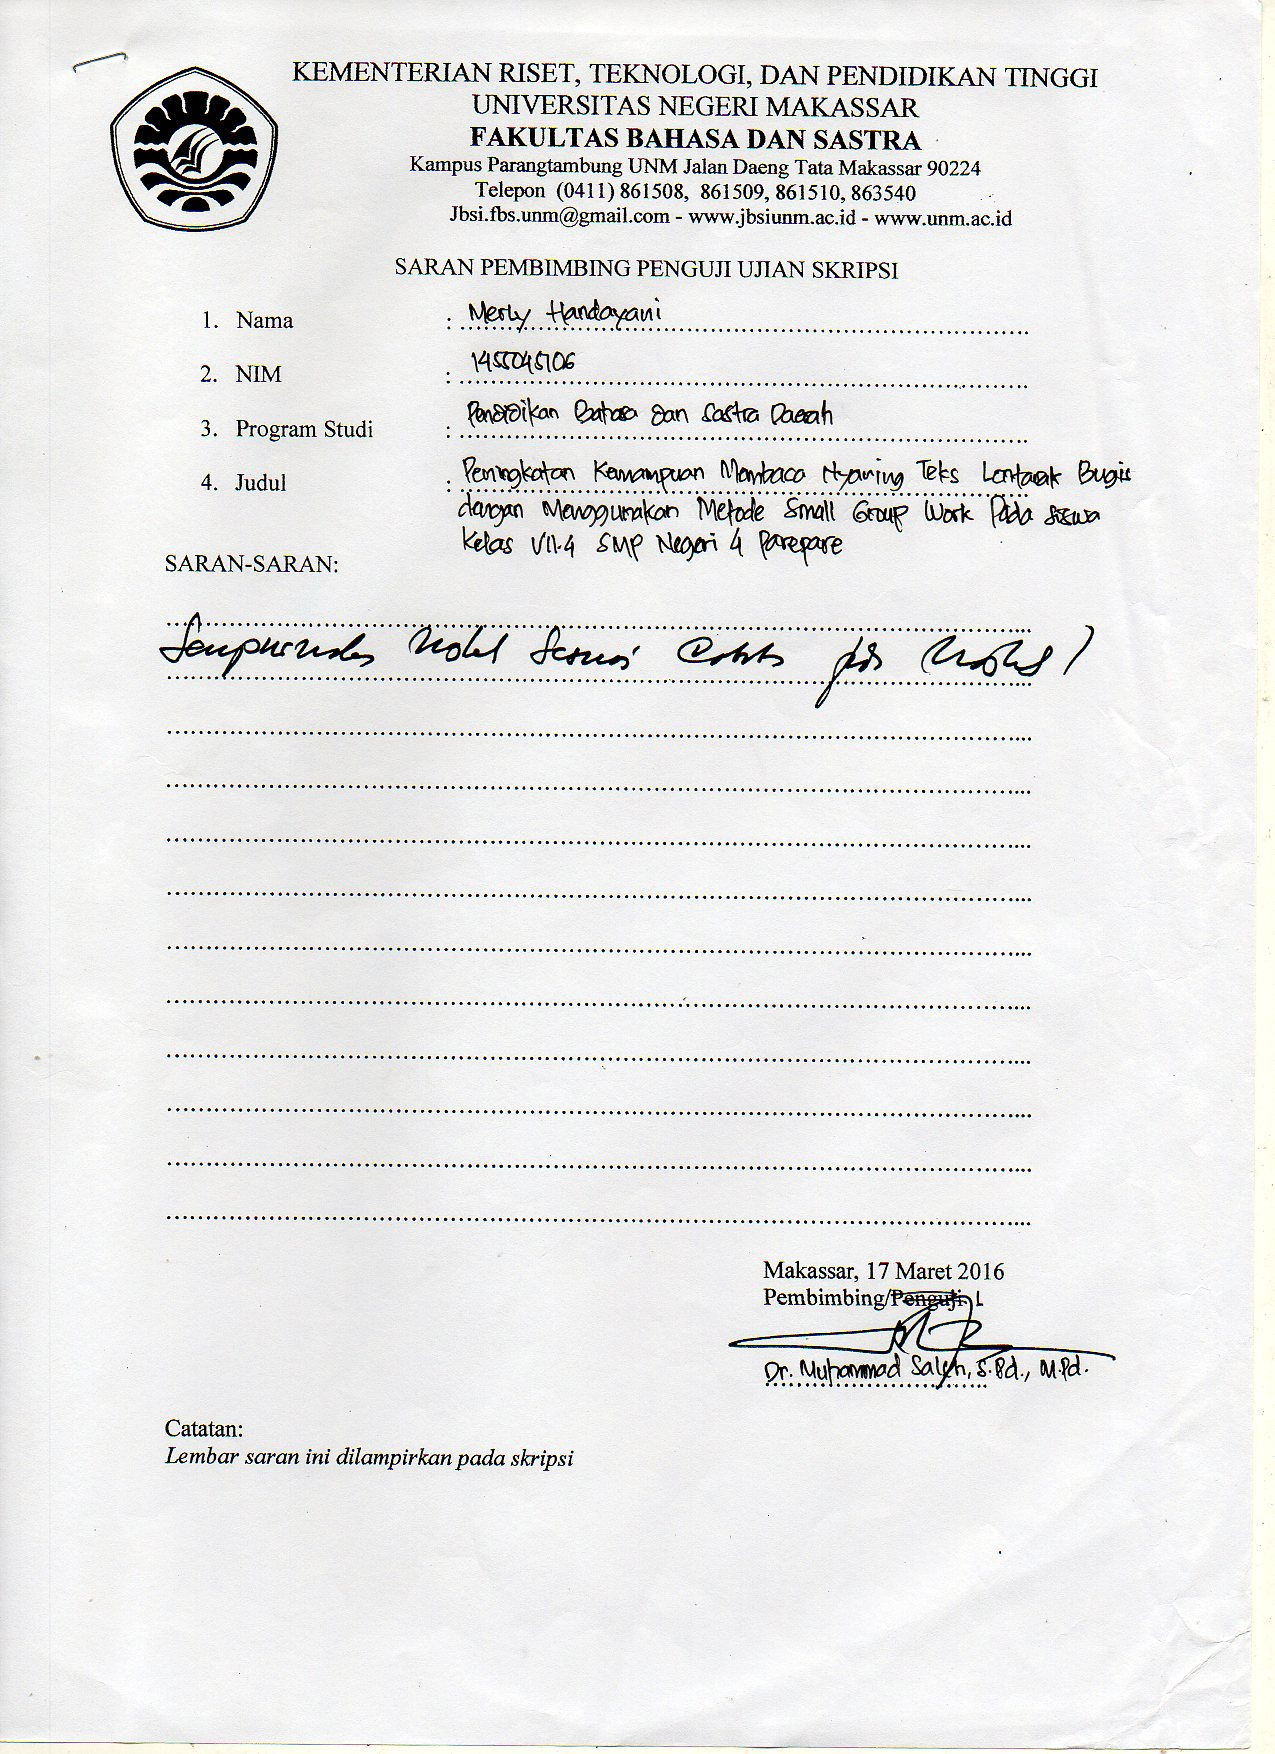 KEMENTERIAN RISET, TEKNOLOGI, DAN PENDIDIKAN TINGGI
UNIVERSITAS NEGERI MAKASSAR
FAKULTAS BAHASA DAN SASTRA
Kampus Parangtambung UNM Jalan Daeng Tata Makassar 90224
Telepon (0411) 861508, 861509, 861510, 863540
Jbsi.fbs.unm@gmail.com - www.jbsiunm.ac.id - www.unm.ac.id
SARAN PEMBIMBING PENGUJI UJIAN SKRIPSI
1. Nama : Merly Handayani
2. NIM : 1455045106
3. Program Studi : Pendidikan Bahasa dan Sastra Daerah
4. Judul : Peningkatan Kemampuan Membaca Nyaring Teks Lontarak Bugis
dengan Menggunakan Metode Small Group Work Pada siswa
Kelas VII.4 SMP Negeri 4 Parepare
SARAN-SARAN:
Makassar, 17 Maret 2016
Pembimbing/Penguji I
Dr. Muhammad Saleh, S.Pd., M.Pd.
Catatan:
Lembar saran ini dilampirkan pada skripsi